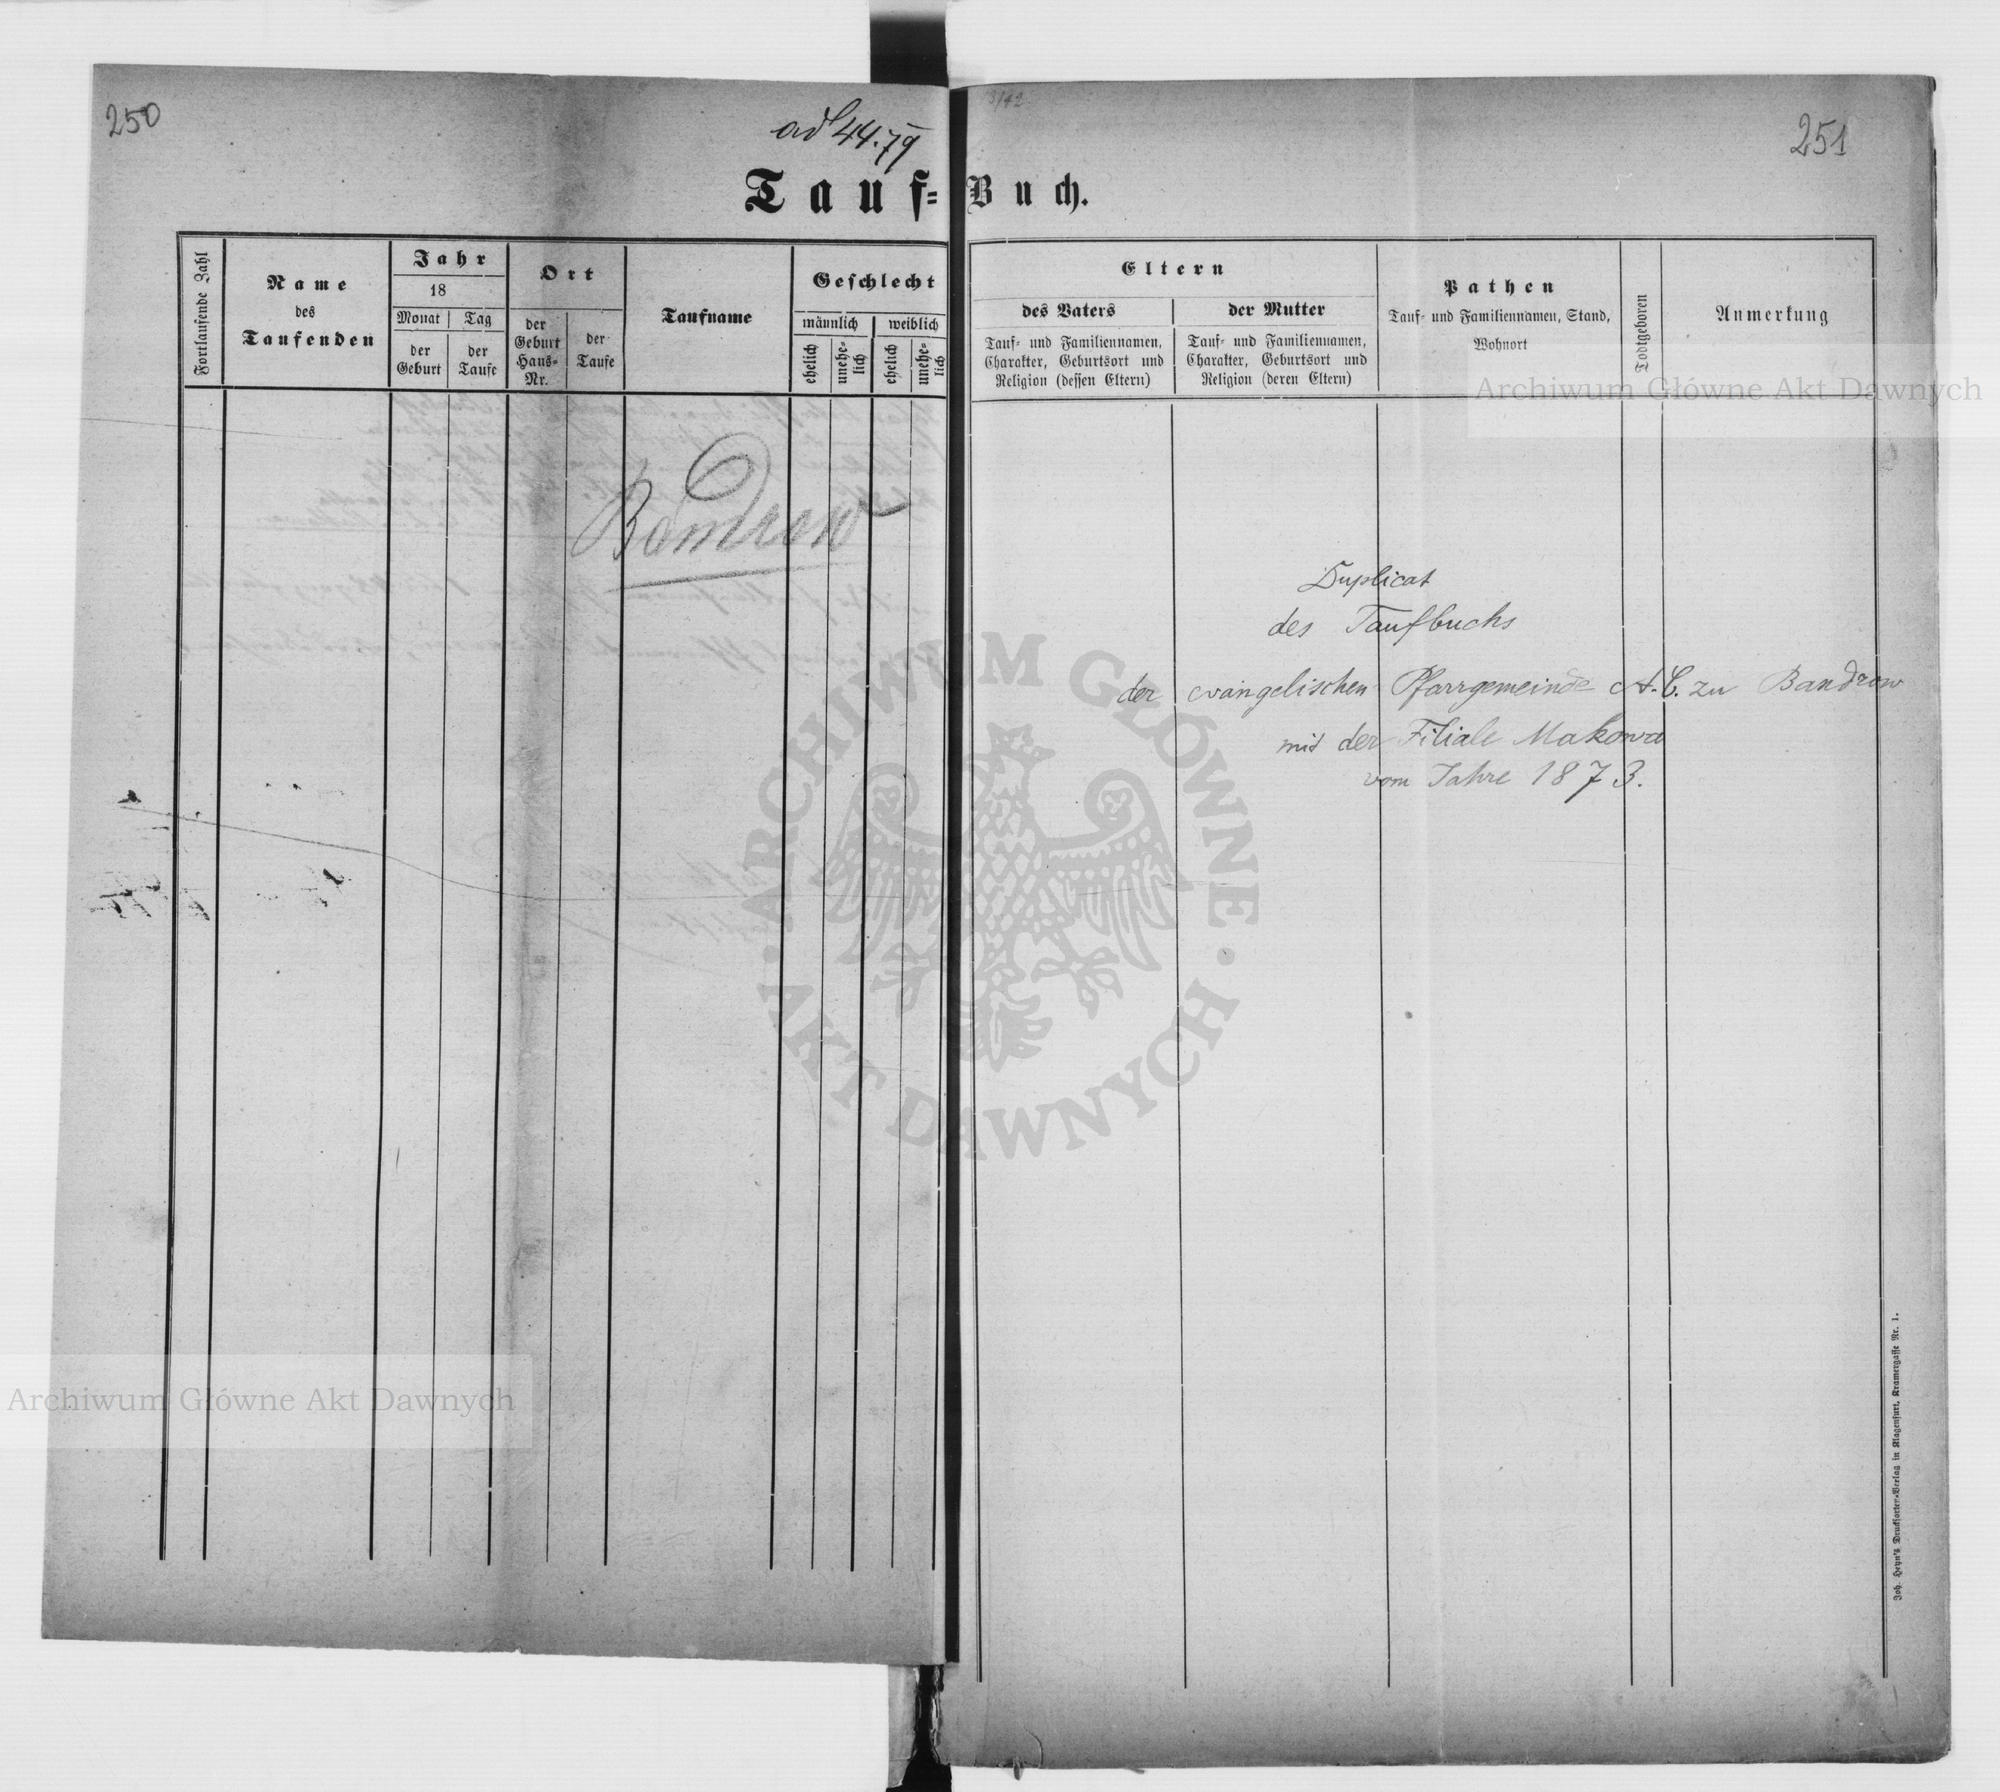 250
ad 44.79
Tauf=
Fortlaufende Zahl
Name
des
Taufenden
Jahr
18
Monat
Tag
der
Geburt
der
Taufe
Ort
der
Geburt
Haus=
Nr.
der
Taufe
Taufname
Geschlecht
männlich
weiblich
ehelich
unehe=
lich
ehelich
unehe=
lich
Bandrow
251
Buch.
Eltern
des Vaters
Tauf= und Familiennamen,
Charakter, Geburtsort und
Religion (dessen Eltern)
der Mutter
Tauf= und Familiennamen,
Charakter, Geburtsort und
Religion (deren Eltern)
Pathen
Tauf= und Familiennamen, Stand,
Wohnort
Todtgeboren
Anmerkung
Duplicat
des Taufbuchs
der evangelischen Pfarrgemeinde A. C. zu Bandrow
mit der Filiale Makowa
vom Jahre 1873.
Joh. Heyn's Drucksorten=Verlag in Klagenfurt, Kramergasse Nr. 1.
Archiwum Główne Akt Dawnych
Archiwum Główne Akt Dawnych
ARCHIWUM GŁÓWNE
AKT DAWNYCH